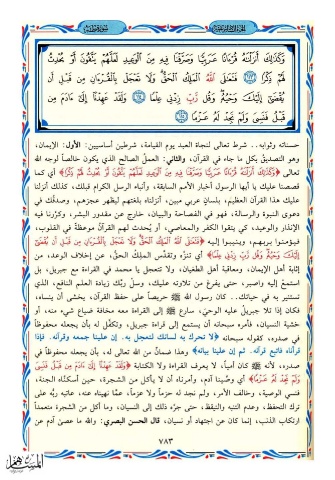 وَكَذَٰلِكَ أَنزَلْنَاهُ قُرْءَانًا عَرَبِيًّا وَصَرَّفْنَا فِيهِ مِنَ الْوَعِيدِ لَعَلَّهُمْ يَتَّقُونَ أَوْ يُحْدِثُ
لَهُمْ ذِكْرًا ﴿١١٣﴾ فَتَعَالَى اللَّهُ الْمَلِكُ الْحَقُّ وَلَا تَعْجَلْ بِالْقُرْءَانِ مِن قَبْلِ أَن
يُقْضَىٰٓ إِلَيْكَ وَحْيُهُ وَقُل رَّبِّ زِدْنِي عِلْمًا ﴿١١٤﴾ وَلَقَدْ عَهِدْنَآ إِلَىٰٓ ءَادَمَ مِن
قَبْلُ فَنَسِيَ وَلَمْ نَجِدْ لَهُ عَزْمًا ﴿١١٥﴾
حسناته وثوابه.. شرط تعالى لنجاة العبد يوم القيامة، شرطين أساسيين: الأول: الإيمان،
وهو التصديق بكل ما جاء في القرآن، والثاني: العمل الصالح الذي يكون خالصاً لوجه الله
تعالى ﴿وَكَذَٰلِكَ أَنزَلْنَاهُ قُرْءَانًا عَرَبِيًّا وَصَرَّفْنَا فِيهِ مِنَ الْوَعِيدِ لَعَلَّهُمْ يَتَّقُونَ أَوْ يُحْدِثُ لَهُمْ ذِكْرًا﴾ أي كما
قصصنا عليك يا أيها الرسول أخبار الأمم السابقة، وأنباء الرسل الكرام قبلك، كذلك أنزلنا
عليك هذا القرآن العظيم، بلسانٍ عربي مبين، أنزلناه بلغتهم ليظهر عجزهم، وصدقُك في
دعوى النبوة والرسالة، فهو في الفصاحة والبيان، خارج عن مقدور البشر، وكررنا فيه
الإنذار والوعيد، كي يتقوا الكفر والمعاصي، أو يُحدث لهم القرآنُ موعظة في القلوب،
فيؤمنوا بربهم، وينيبوا إليه ﴿فَتَعَالَى اللَّهُ الْمَلِكُ الْحَقُّ وَلَا تَعْجَلْ بِالْقُرْءَانِ مِن قَبْلِ أَن يُقْضَىٰٓ
إِلَيْكَ وَحْيُهُ وَقُل رَّبِّ زِدْنِي عِلْمًا﴾ أي تنزَّه وتقدَّس الملِكُ الحق، عن إخلاف الوعد، من
إثابة أهل الإيمان، ومعاقبة أهل الطغيان، ولا تتعجل يا محمد في القراءة مع جبريل، بل
استمع إليه واصبر، حتى يفرغ من تلاوته عليك، وسلْ ربَّك زيادة العلم النافع، الذي
تستنير به في حياتك.. كان رسول الله ﷺ حريصاً على حفظ القرآن، يخشى أن ينساه،
فكان إذا تلا جبريلُ عليه الوحيَ، سارع ﷺ إلى القراءة معه مخافة ضياع شيء منه، أو
خشية النسيان، فأمره سبحانه أن يستمع إلى قراءة جبريل، وتكفَّل له بأن يجعله محفوظاً
في صدره، كقوله سبحانه ﴿لا تحرك به لسانك لتعجل به. إن علينا جمعه وقرآنه. فإذا
قرأناه فاتبع قرآنه. ثم إن علينا بيانه﴾ وهذا ضمانٌ من الله تعالى له، بأن يجعله محفوظاً في
صدره، لأنه ﷺ كان أمياً، لا يعرف القراءة ولا الكتابة ﴿وَلَقَدْ عَهِدْنَآ إِلَىٰٓ ءَادَمَ مِن قَبْلُ فَنَسِيَ
وَلَمْ نَجِدْ لَهُ عَزْمًا﴾ أي وصَّينا آدم، وأمرناه أن لا يأكل من الشجرة، حين أسكنَّاه الجنة،
فنسي الوصية، وخالف الأمر، ولم نجد له حزماً ولا عزماً، عمَّا نهيناه عنه، عاتبه ربُّه على
ترك التحفظ، وعدم التنبه والتيقظ، حتى جرَّه ذلك إلى النسيان، وما أكل من الشجرة متعمداً
ارتكاب الذنب، إنما كان عن اجتهاد أو نسيان، قال الحسن البصري: والله ما عصى آدم عن
٧٨٣